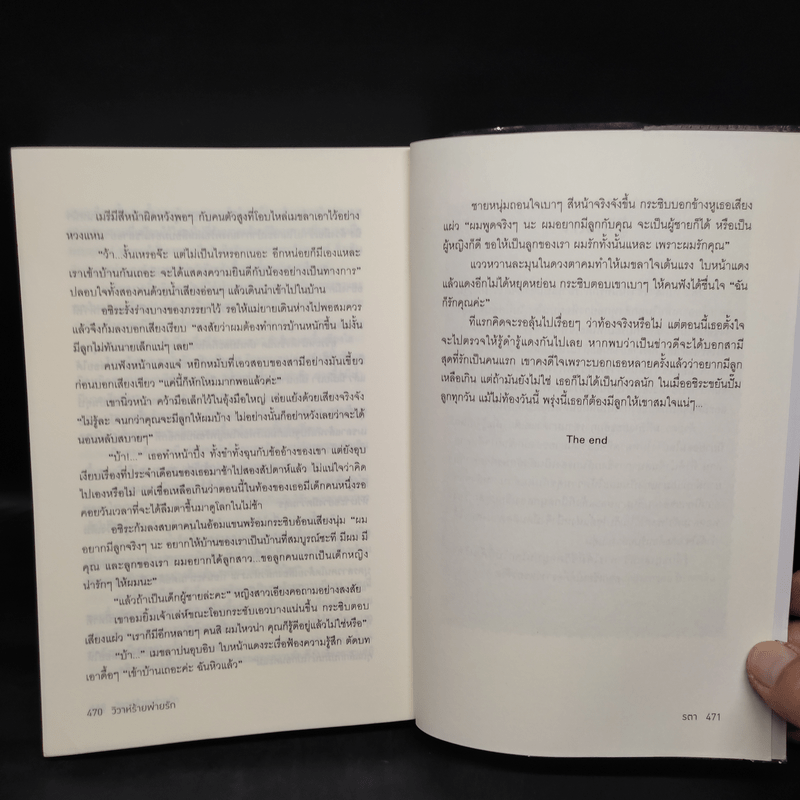 เมรีมีสีหน้าผิดหวังพอๆ กับคนตัวสูงที่โอบไหล่เมขลาเอาไว้อย่าง
หวงแหน
“ว้า...งั้นเหรอจ๊ะ แต่ไม่เป็นไรหรอกเนอะ อีกหน่อยก็มีเองแหละ
เราเข้าบ้านกันเถอะ จะได้แสดงความยินดีกับน้องอย่างเป็นทางการ”
ปลอบใจทั้งสองคนด้วยน้ำเสียงอ่อนๆ แล้วเดินนำเข้าไปในบ้าน
อชิระรั้งร่างบางของภรรยาไว้ รอให้แม่ยายเดินห่างไปพอสมควร
แล้วจึงก้มลงบอกเสียงเรียบ “สงสัยว่าผมต้องทำการบ้านหนักขึ้น ไม่งั้น
มีลูกไม่ทันนายเล็กแน่ๆ เลย”
คนฟังหน้าแดงแจ๋ หยิกหมับที่เอวสอบของสามีอย่างมันเขี้ยว
ก่อนบอกเสียงเขียว “แค่นี้ก็หักโหมมากพอแล้วค่ะ”
เขานิ่วหน้า คว้ามือเล็กไว้ในอุ้งมือใหญ่ เอ่ยแย้งด้วยเสียงจริงจัง
“ไม่รู้ละ จนกว่าคุณจะมีลูกให้ผมบ้าง ไม่อย่างนั้นก็อย่าหวังเลยว่าจะได้
นอนหลับสบายๆ”
“บ้า!...” เธอทำหน้าบึ้ง ทั้งขำทั้งฉุนกับข้ออ้างของเขา แต่ยังอุบ
เงียบเรื่องที่ประจำเดือนของเธอมาช้าไปสองสัปดาห์แล้ว ไม่แน่ใจว่าคิด
ไปเองหรือไม่ แต่เชื่อเหลือเกินว่าตอนนี้ในท้องของเธอมีเด็กคนหนึ่งรอ
คอยวันเวลาที่จะได้ลืมตาขึ้นมาดูโลกในไม่ช้า
อชิระก้มลงสบตาคนในอ้อมแขนพร้อมกระซิบอ้อนเสียงนุ่ม “ผม
อยากมีลูกจริงๆ นะ อยากให้บ้านของเราเป็นบ้านที่สมบูรณ์ซะที มีผม มี
คุณ และลูกของเรา ผมอยากได้ลูกสาว...ขอลูกคนแรกเป็นเด็กหญิง
น่ารักๆ ให้ผมนะ”
“แล้วถ้าเป็นเด็กผู้ชายล่ะคะ” หญิงสาวเอียงคอถามอย่างสงสัย
เขาอมยิ้มเจ้าเล่ห์ขณะโอบกระชับเอวบางแน่นขึ้น กระซิบตอบ
เสียงแผ่ว “เราก็มีอีกหลายๆ คนสิ ผมไหวน่า คุณก็รู้ดีอยู่แล้วไม่ใช่หรือ”
“บ้า...” เมขลาบ่นอุบอิบ ใบหน้าแดงระเรื่อฟ้องความรู้สึก ตัดบท
เอาดื้อๆ “เข้าบ้านเถอะค่ะ ฉันหิวแล้ว”
470 วิวาห์ร้ายพ่ายรัก
ชายหนุ่มถอนใจเบาๆ สีหน้าจริงจังขึ้น กระซิบบอกข้างหูเธอเสียง
แผ่ว “ผมพูดจริงๆ นะ ผมอยากมีลูกกับคุณ จะเป็นผู้ชายก็ได้ หรือเป็น
ผู้หญิงก็ดี ขอให้เป็นลูกของเรา ผมรักทั้งนั้นแหละ เพราะผมรักคุณ”
แววหวานละมุนในดวงตาคมทำให้เมขลาใจเต้นแรง ใบหน้าแดง
แล้วแดงอีกไม่ได้หยุดหย่อน กระซิบตอบเขาเบาๆ ให้คนฟังได้ชื่นใจ “ฉัน
ก็รักคุณค่ะ”
ที่แรกคิดจะรอลุ้นไปเรื่อยๆ ว่าท้องจริงหรือไม่ แต่ตอนนี้เธอตั้งใจ
จะไปตรวจให้รู้ดำรู้แดงกันไปเลย หากพบว่าเป็นข่าวดีจะได้บอกสามี
สุดที่รักเป็นคนแรก เขาคงดีใจเพราะบอกเธอหลายครั้งแล้วว่าอยากมีลูก
เหลือเกิน แต่ถ้ามันยังไม่ใช่ เธอก็ไม่ได้เป็นกังวลนัก ในเมื่ออชิระขยันปั๊ม
ลูกทุกวัน แม้ไม่ท้องวันนี้ พรุ่งนี้เธอก็ต้องมีลูกให้เขาสมใจแน่ๆ...
The end
รตา 471